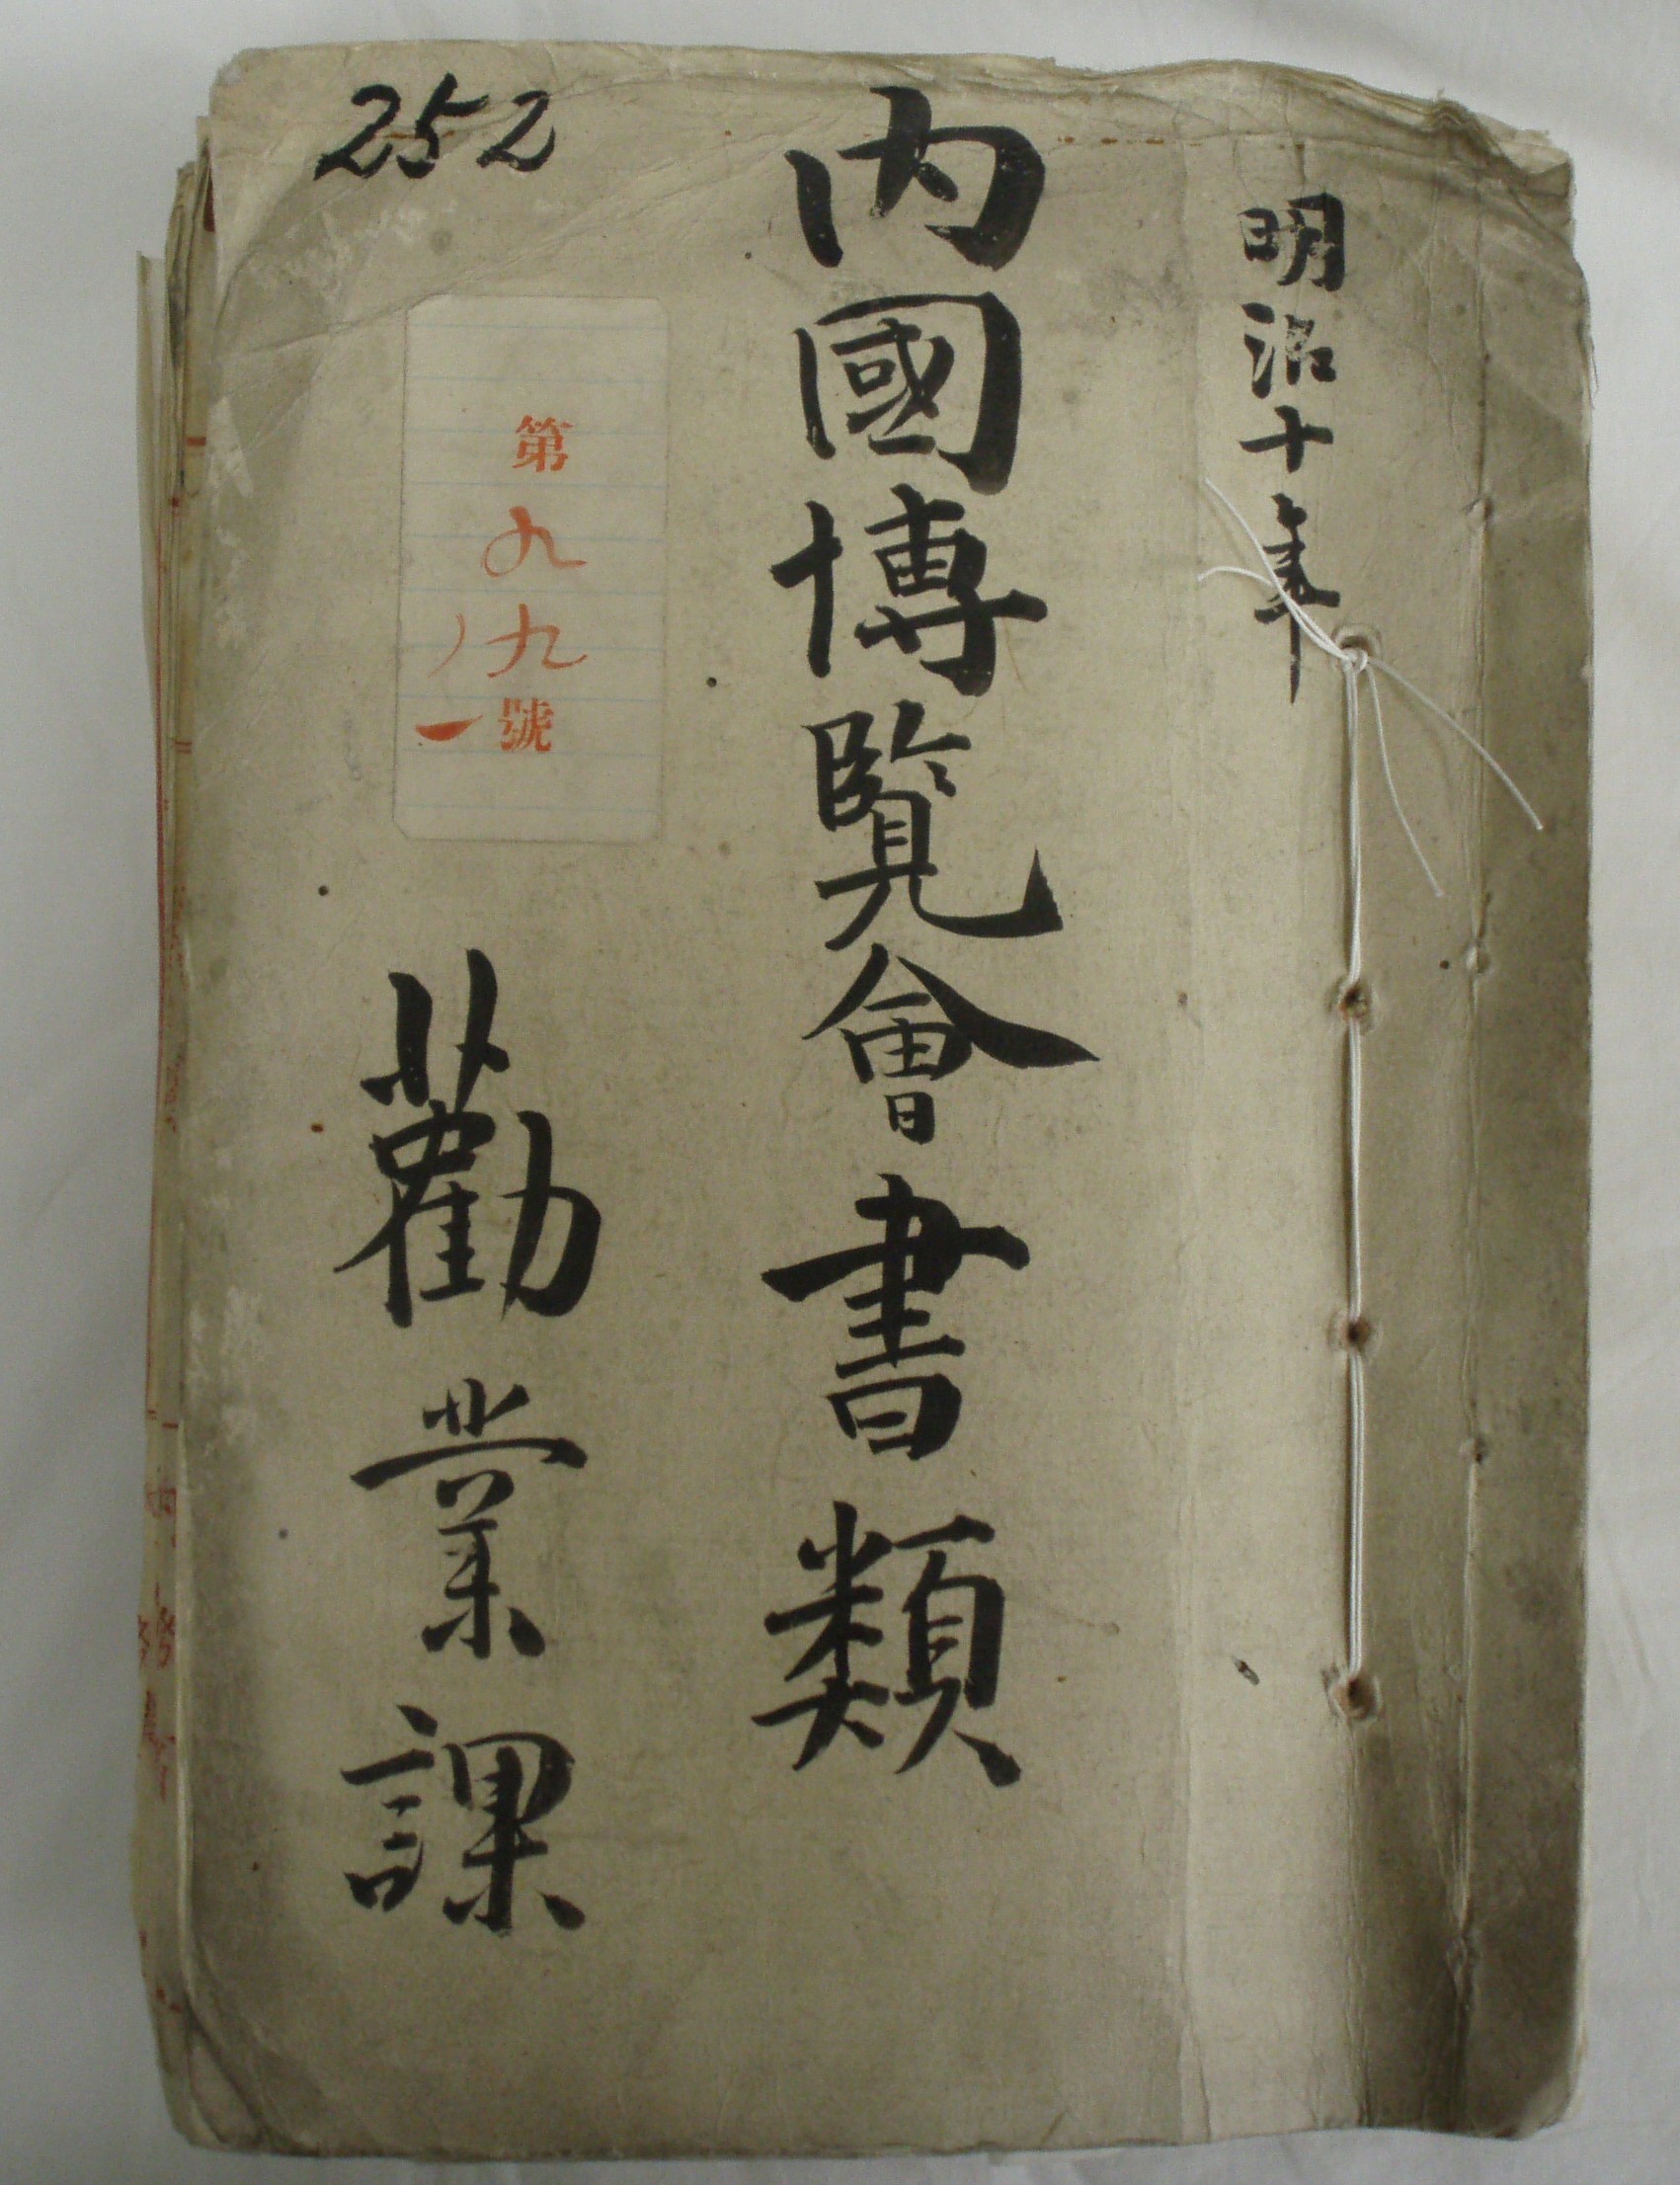 明治十年
内國博覧會書類
252
第九九號
ノ一
勸業課